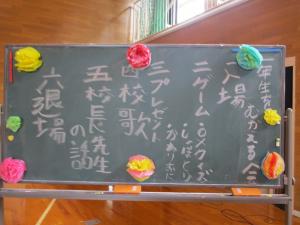 一年生をむかえる会
一入場
二ゲーム・〇×クイズ
・しっぽとり
・かもつれっしゃ
三プレゼント
四校歌
五校長先生の話
六退場